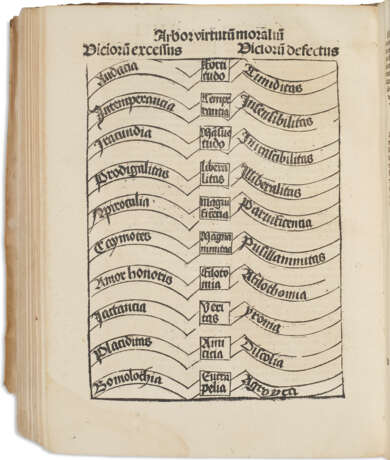 Arbor virtutũ moraliũ
Viciorũ excessus Viciorũ defectus
Audacia Forti tudo Timiditas
Intemperancia Temp erantia Insensibilitas
Iracundia Mãsue tudo
Prodigalitas Libera litas Illiberalitas
Apirocalia Magni ficẽtia Paruificentia
Caymotes Magna nimitas Pusillanimitas
Amor honoris Filoto mia Afilothomia
Iactancia Veri tas yronia
Placiditas Ami citia Discolia
Bomolochia Eutra pelia